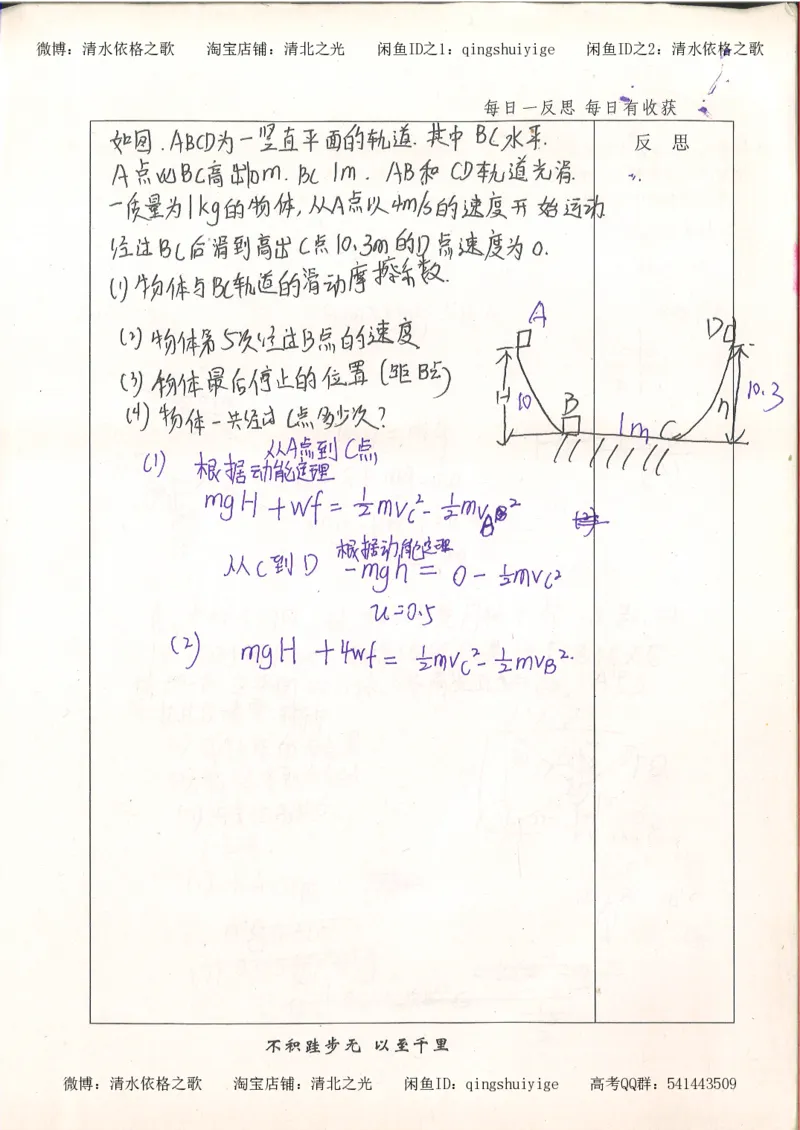 微博：清水依格之歌 淘宝店铺：清北之光 闲鱼ID之1：qingshuiyige 闲鱼ID之2：清水依格之歌
每日一反思 每日有收获
反 思
如图.ABCD为一竖直平面的轨道.其中BC水平.
A点比BC高出10m.BC 1m.AB和CD轨道光滑.
一质量为1kg的物体,从A点以4m/s的速度开始运动
经过BC后滑到高出C点10.3m的D点速度为0.
(1)物体与BC轨道的滑动摩擦系数.
(2)物体第5次经过B点的速度
(3)物体最后停止的位置(距B点)
(4)物体一共经过C点多少次?
A
D
H
10
B
1m
C
h
10.3
(1) 根据动能定理 从A点到C点
mgH+wf=½mvC²-½mvA²
从C到D 根据动能定理 -mgh=0-½mvC²
u=0.5
(2) mgH+4wf=½mvC²-½mvB².
不积跬步无 以至千里
微博：清水依格之歌 淘宝店铺：清北之光 闲鱼ID：qingshuiyige 高考QQ群：541443509